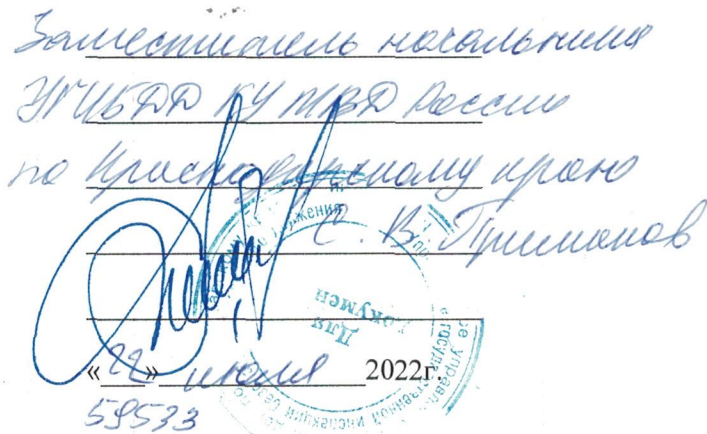 Заместитель начальника
УГИБДД ГУ МВД России
по Краснодарскому краю
С. В. Приманов
Для
докумен
«22» июля 2022г.
59533